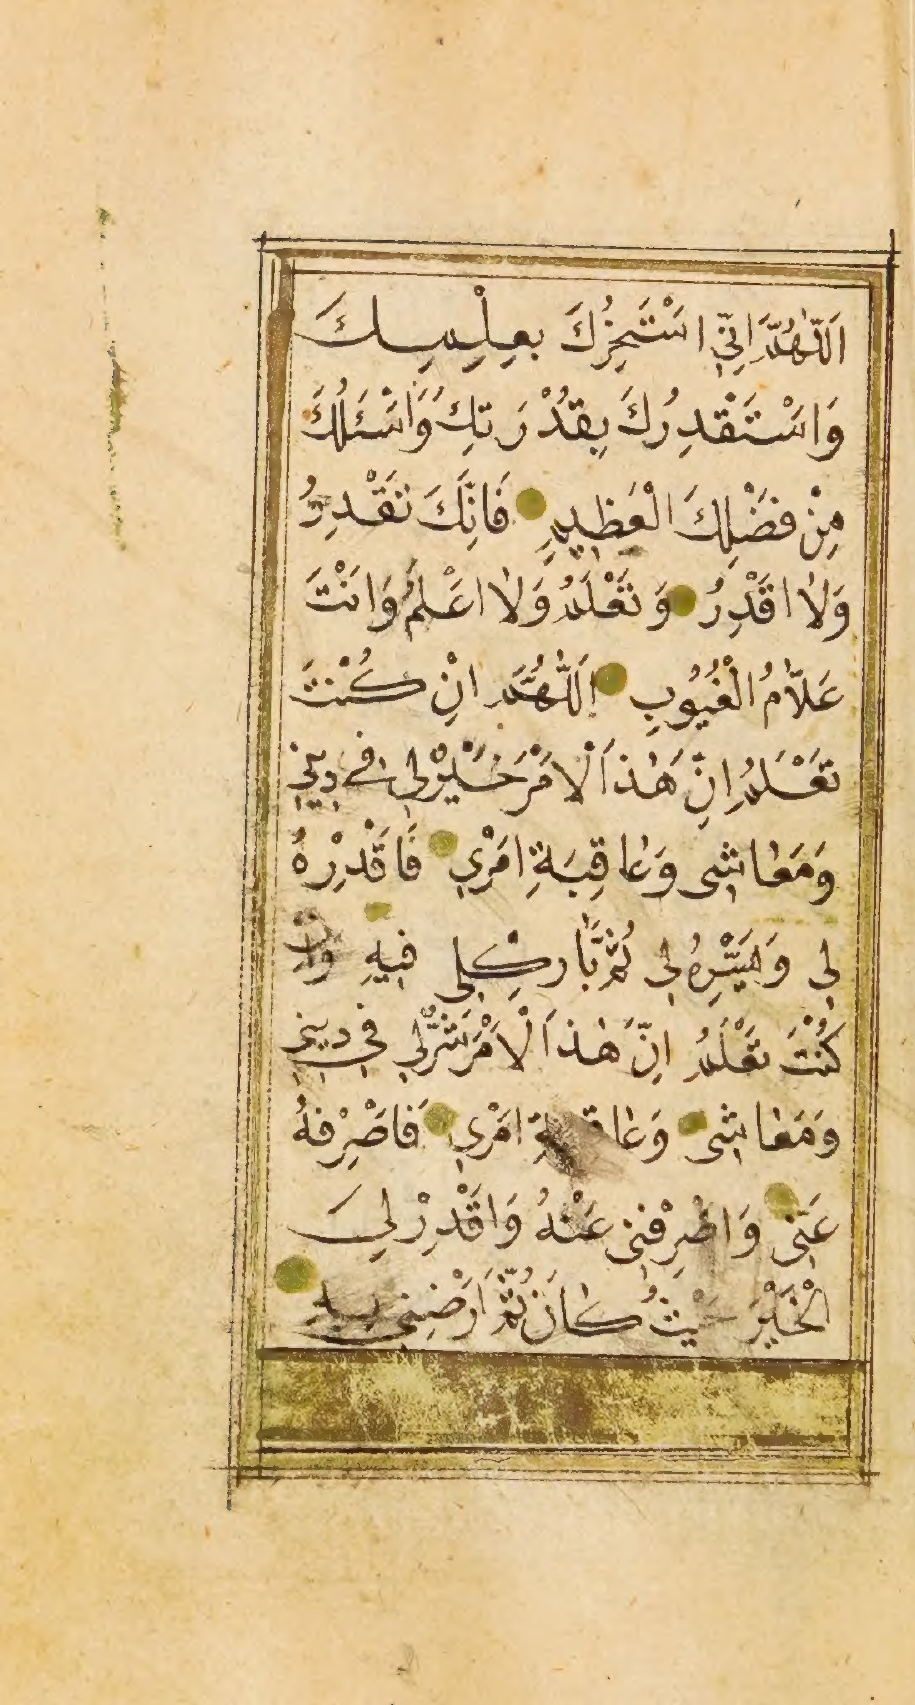 اَللّٰهُمَّ اِنّ۪ي اَسْتَخِيرُكَ بِعِلْمِكَ
وَاَسْتَقْدِرُكَ بِقُدْرَتِكَ وَاَسْئَلُكَ
مِنْ فَضْلِكَ الْعَظ۪يمِ فَاِنَّكَ تَقْدِرُ
وَلَا اَقْدِرُ وَتَعْلَمُ وَلَا اَعْلَمُ وَاَنْتَ
عَلَّامُ الْغُيُوبِ اَللّٰهُمَّ اِنْ كُنْتَ
تَعْلَمُ اِنَّ هٰذَا الْاَمْرَ خَيْرٌ لِي فِي دِينِي
وَمَعَاشِي وَعَاقِبَةِ اَمْرِي فَاقْدِرْهُ
لِي وَيَسِّرْهُ لِي ثُمَّ بَارِكْ لِي فِيهِ وَاِنْ
كُنْتَ تَعْلَمُ اِنَّ هٰذَا الْاَمْرَ شَرٌّ لِي فِي دِينِي
وَمَعَاشِي وَعَاقِبَةِ اَمْرِي فَاصْرِفْهُ
عَنِّي وَاصْرِفْنِي عَنْهُ وَاقْدِرْ لِيَ
الْخَيْرَ حَيْثُ كَانَ ثُمَّ اَرْضِنِي بِهِ